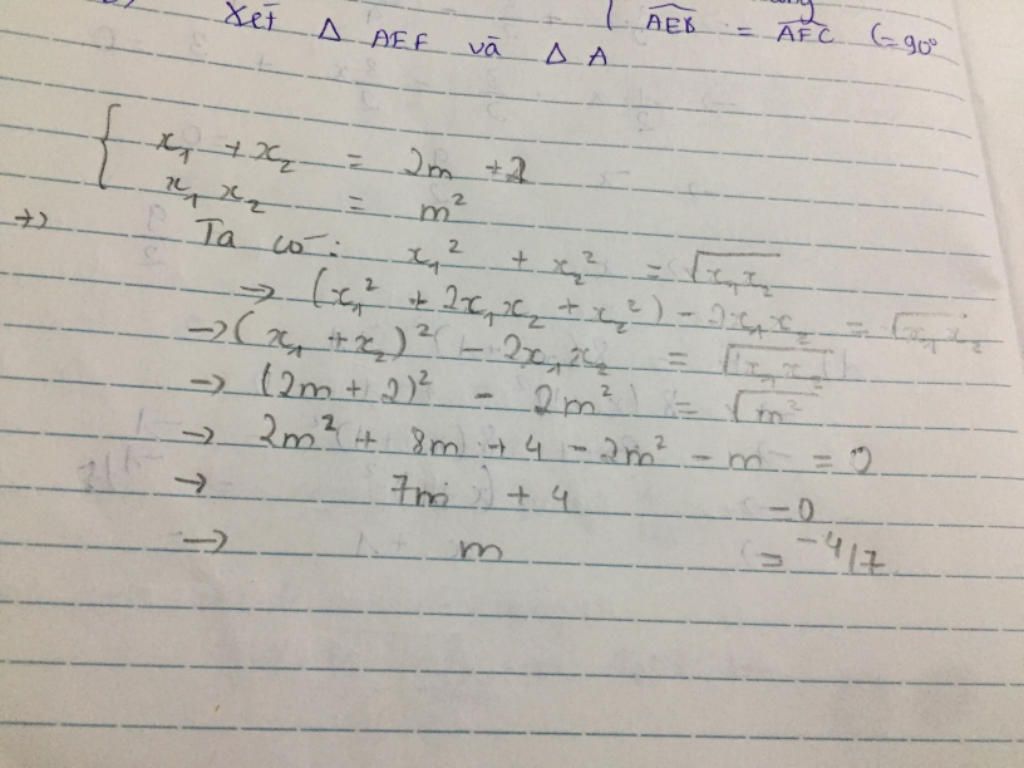 Xét Δ AEF và Δ A
{ AEB = AFC (= 90°
x₁ + x₂ = 2m + 2
x₁ x₂ = m²
=> Ta có: x₁² + x₂² = √x₁x₂
→ (x₁² + 2x₁x₂ + x₂²) - 2x₁x₂ = √x₁x₂
→ (x₁ + x₂)² - 2x₁x₂ = √x₁x₂
→ (2m + 2)² - 2m² = √m²
→ 2m² + 8m + 4 - 2m² - m = 0
→ 7m + 4 = 0
→ m = -4/7